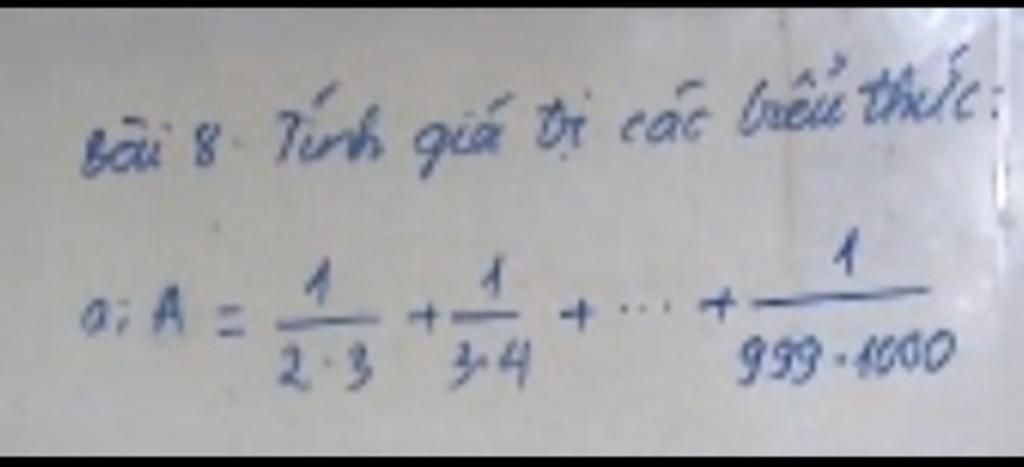 Bài 8. Tính giá trị các biểu thức:
a; A = 1/(2·3) + 1/(3·4) + ... + 1/(999·1000)